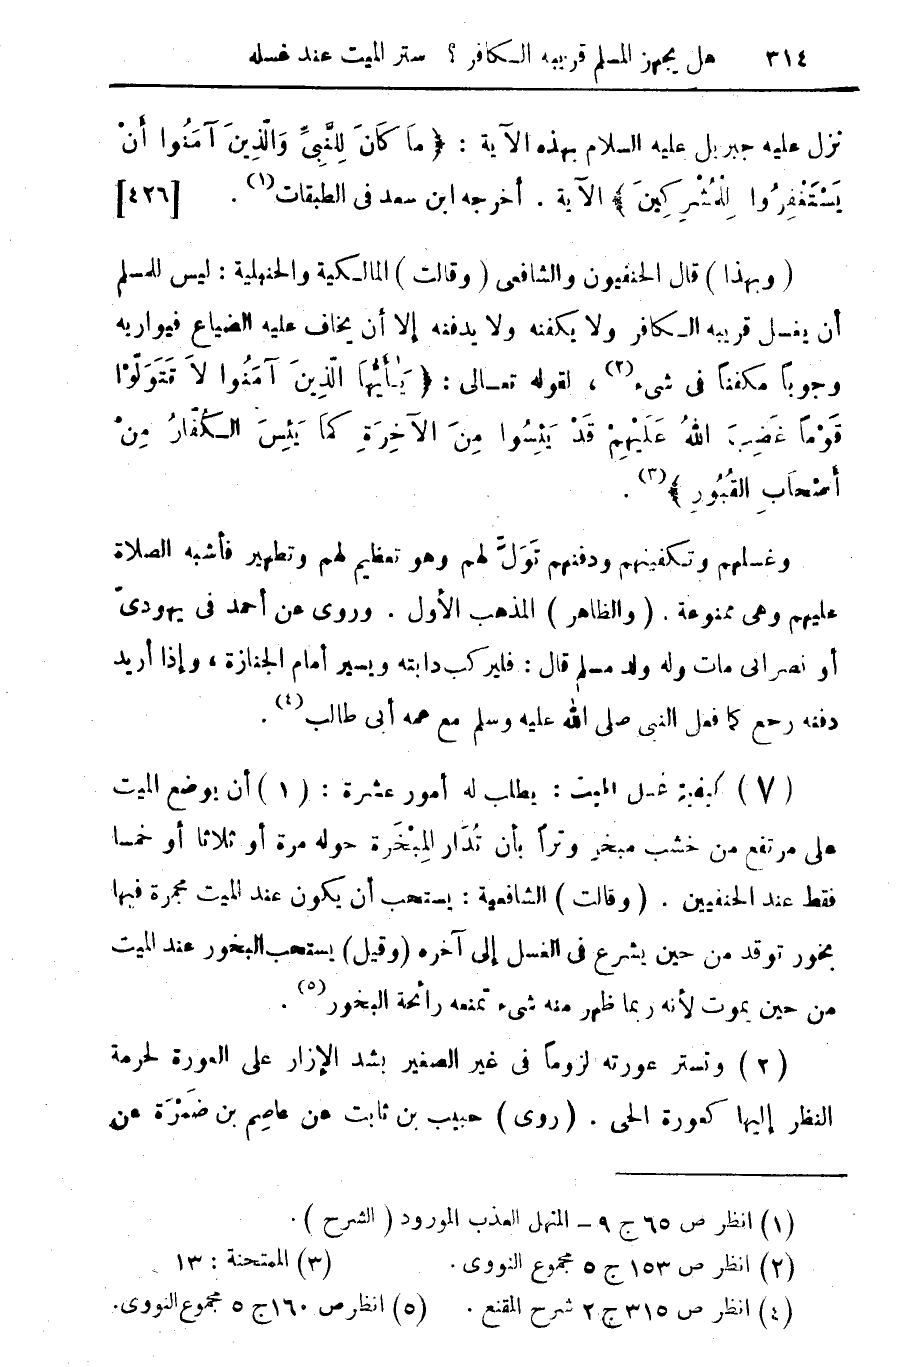 ٣١٤ هل يجهز المسلم قريبه الكافر ؟ ستر الميت عند غسله
نزل عليه جبريل عليه السلام بهذه الآية : ﴿ مَا كَانَ لِلنَّبِيِّ وَالَّذِينَ آمَنُوا أَنْ
يَسْتَغْفِرُوا لِلْمُشْرِكِينَ ﴾ الآية . أخرجه ابن سعد فى الطبقات(١) . [٤٢٦]
( وبهذا ) قال الحنفيون والشافعى ( وقالت ) المالكية والحنبلية : ليس للمسلم
أن يغسل قريبه الكافر ولا يكفنه ولا يدفنه إلا أن يخاف عليه الضياع فيواريه
وجوباً مكفناً فى شىء(٢) ، لقوله تعالى : ﴿ يَٰأَيُّهَا الَّذِينَ آمَنُوا لاَ تَتَوَلَّوْا
قَوْماً غَضِبَ اللهُ عَلَيْهِمْ قَدْ يَئِسُوا مِنَ الآخِرَةِ كَمَا يَئِسَ الكُفَّارُ مِنْ
أَصْحَابِ القُبُورِ ﴾(٣) .
وغسلهم وتكفينهم ودفنهم تَوَلٍّ لهم وهو تعظيم لهم وتطهير فأشبه الصلاة
عليهم وهى ممنوعة . ( والظاهر ) المذهب الأول . وروى عن أحمد فى يهودىّ
أو نصرانى مات وله ولد مسلم قال : فليركب دابته ويسير أمام الجنازة ، وإذا أريد
دفنه رجع كما فعل النبى صلى الله عليه وسلم مع عمه أبى طالب(٤) .
( ٧ ) كيفية غسل الميت : يطلب له أمور عشرة : ( ١ ) أن يوضع الميت
على مرتفع من خشب مبخر وتراً بأن تُدَار المِبْخَرَة حوله مرة أو ثلاثا أو خمسا
فقط عند الحنفيين . ( وقالت ) الشافعية : يستحب أن يكون عند الميت مجمرة فيها
بخور توقد من حين يشرع فى الغسل إلى آخره (وقيل) يستحب البخور عند الميت
من حين يموت لأنه ربما ظهر منه شىء تمنعه رائحة البخور(٥) .
( ٢ ) وتستر عورته لزوماً فى غير الصغير بشد الإزار على العورة لحرمة
النظر إليها كعورة الحى . ( روى ) حبيب بن ثابت عن عاصم بن ضَمْرَة عن
(١) انظر ص ٦٥ ج ٩ – المنهل العذب المورود ( الشرح ) .
(٢) انظر ص ١٥٣ ج ٥ مجموع النووى . (٣) الممتحنة : ١٣
(٤) انظر ص ٣١٥ ج ٢ شرح المقنع . (٥) انظر ص ١٦٠ ج ٥ مجموع النووى.